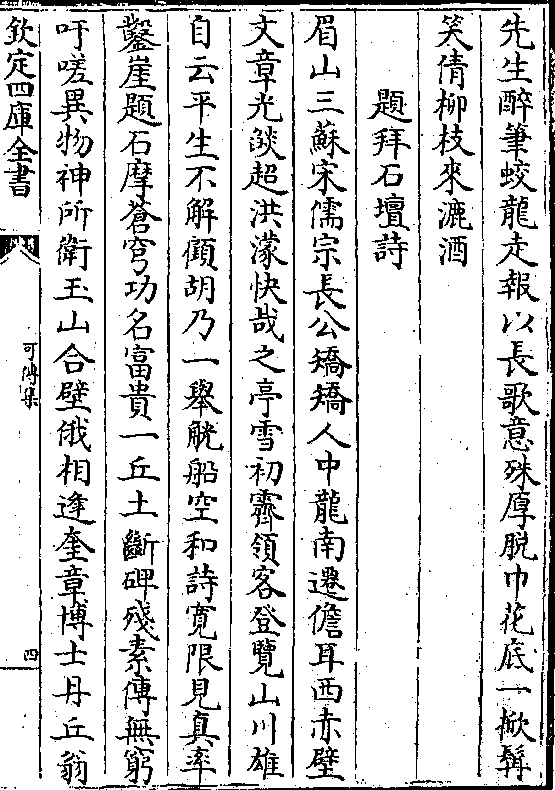 先生醉筆蛟龍走報以長歌意殊厚脫巾花底一掀髯
笑倩柳枝來漉酒
題拜石壇詩
眉山三蘇宋儒宗長公矯矯人中龍南遷儋耳西赤壁
文章光燄超洪濛快哉之亭雪初霽領客登覽山川雄
自云平生不解顧胡乃一舉觥船空和詩寛限見真率
鑿崖題石摩蒼穹功名富貴一丘土斷碑殘素傳無窮
吁嗟異物神所衛玉山合璧俄相逢奎章博士丹丘翁
欽定四庫全書
可傳集
四